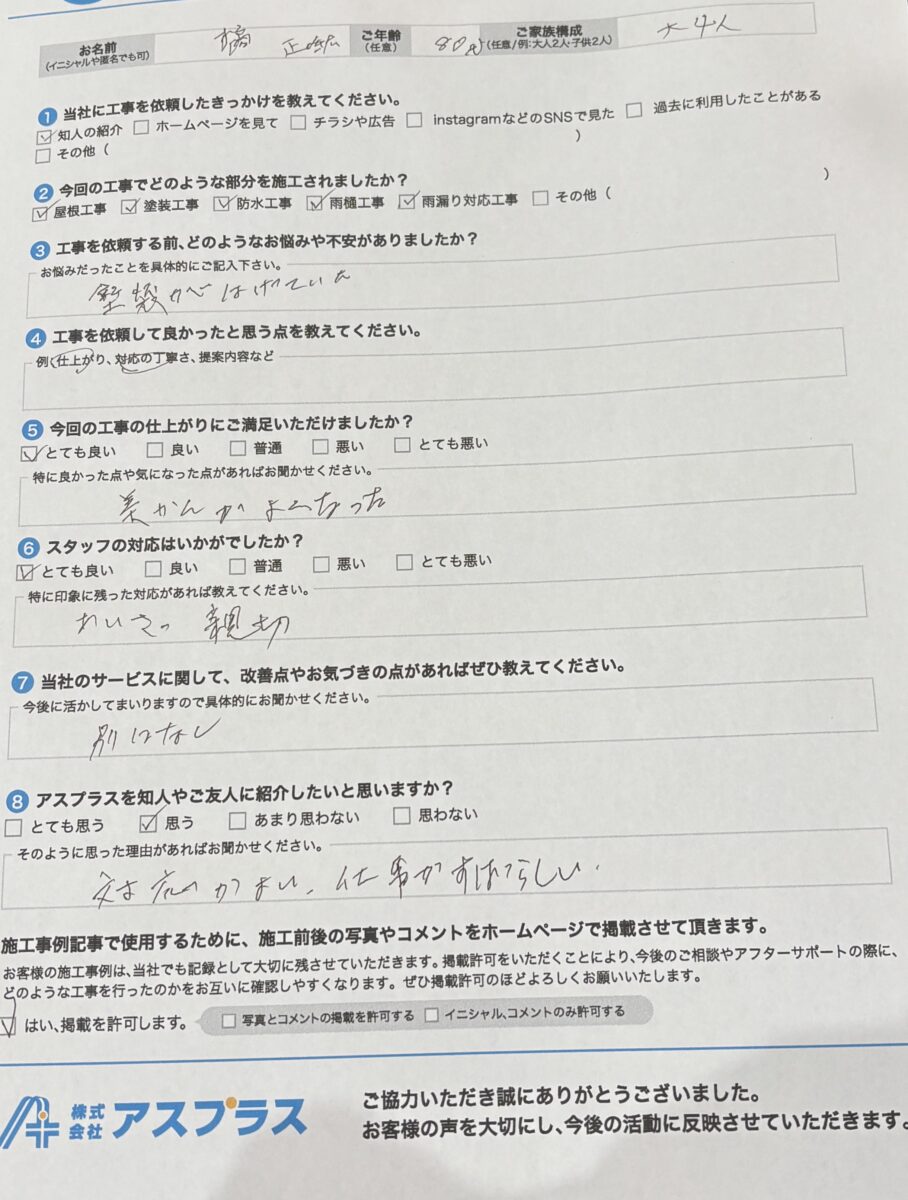 お名前
(イニシャルや匿名でも可)
ご年齢
(任意)
80代
ご家族構成
(任意/例:大人2人・子供2人)
大4人
1 当社に工事を依頼したきっかけを教えてください。
☑ 知人の紹介 □ ホームページを見て □ チラシや広告 □ instagramなどのSNSで見た □ 過去に利用したことがある
□ その他( )
2 今回の工事でどのような部分を施工されましたか?
☑ 屋根工事 ☑ 塗装工事 ☑ 防水工事 ☑ 雨樋工事 ☑ 雨漏り対応工事 □ その他( )
3 工事を依頼する前、どのようなお悩みや不安がありましたか?
お悩みだったことを具体的にご記入下さい。
がはげていた
4 工事を依頼して良かったと思う点を教えてください。
例:仕上がり、対応の丁寧さ、提案内容など
5 今回の工事の仕上がりにご満足いただけましたか?
☑ とても良い □ 良い □ 普通 □ 悪い □ とても悪い
特に良かった点や気になった点があればお聞かせください。
美かんがよくなった
6 スタッフの対応はいかがでしたか?
☑ とても良い □ 良い □ 普通 □ 悪い □ とても悪い
特に印象に残った対応があれば教えてください。
あいさつ 親切
7 当社のサービスに関して、改善点やお気づきの点があればぜひ教えてください。
今後に活かしてまいりますので具体的にお聞かせください。
別になし
8 アスプラスを知人やご友人に紹介したいと思いますか?
□ とても思う ☑ 思う □ あまり思わない □ 思わない
そのように思った理由があればお聞かせください。
対応がよい、仕事がすばらしい。
施工事例記事で使用するために、施工前後の写真やコメントをホームページで掲載させて頂きます。
お客様の施工事例は、当社でも記録として大切に残させていただきます。掲載許可をいただくことにより、今後のご相談やアフターサポートの際に、
どのような工事を行ったのかをお互いに確認しやすくなります。ぜひ掲載許可のほどよろしくお願いいたします。
☑ はい、掲載を許可します。 □ 写真とコメントの掲載を許可する □ イニシャル、コメントのみ許可する
株式会社 アスプラス
ご協力いただき誠にありがとうございました。
お客様の声を大切にし、今後の活動に反映させていただきます。